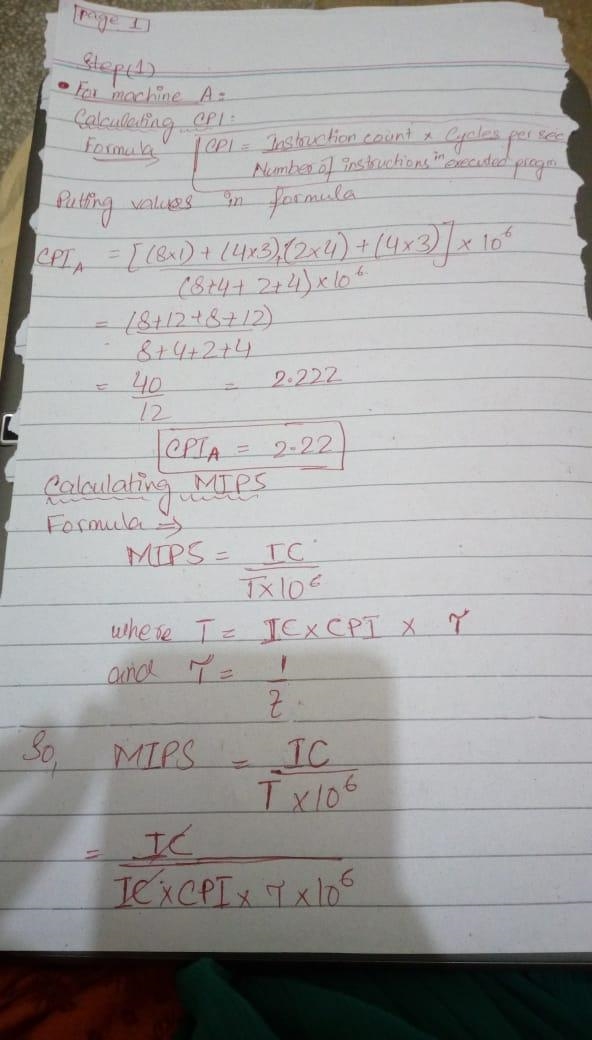 [Page 1]
Step(1)
• For machine A:
Calculating CPI:
Formula CPI = Instruction count x Cycles per sec
Number of instructions in executed progm
Putting values in formula
CPI_A = [(8x1) + (4x3),(2x4) + (4x3)] x 10^6
(8+4+2+4) x 10^6
= (8+12+8+12)
8+4+2+4
= 40 = 2.222
12
CPI_A = 2.22
Calculating MIPS
Formula ⇒
MIPS = IC
Tx10^6
where T = ICxCPI x τ
and τ = 1
Z
So, MIPS = IC
T x10^6
= IC
ICxCPI x τ x10^6